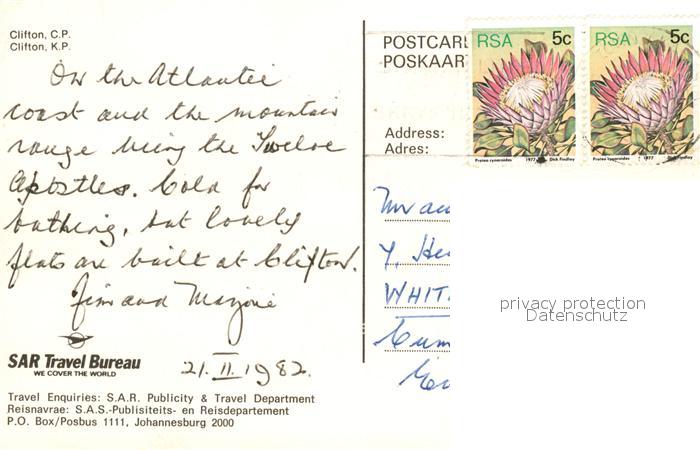 Clifton, C.P.
Clifton, K.P.
On the Atlantic
coast and the mountain
range being the Twelve
Apostles. Cold for
bathing, but lovely
flats are built at Clifton.
Jim and Marjorie
SAR Travel Bureau
WE COVER THE WORLD
21.II.1982.
Travel Enquiries: S.A.R. Publicity & Travel Department
Reisnavrae: S.A.S.-Publisiteits- en Reisdepartement
P.O. Box/Posbus 1111, Johannesburg 2000
POSTCARD
POSKAART
Address:
Adres:
RSA 5c
Protea cynaroides 1977 Dick Findlay
RSA 5c
Protea cynaroides 1977 Dick Findlay
WHIT
privacy protection
Datenschutz